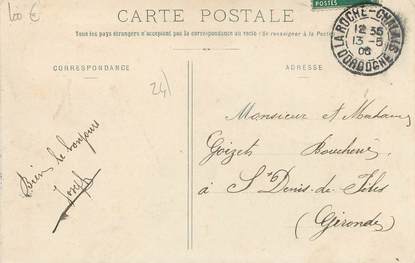 100 €
POSTES
CARTE POSTALE
Tous les pays étrangers n'acceptent pas la correspondance au recto (Se renseigner à la Poste)
LA ROCHE-CHALAIS
12 35
13 -5
08
DORDOGNE
CORRESPONDANCE
ADRESSE
24)
Monsieur et Madame
Goizet Boucherie
à St Denis-de-Piles
(Gironde)
Bien le bonjour
Joseph